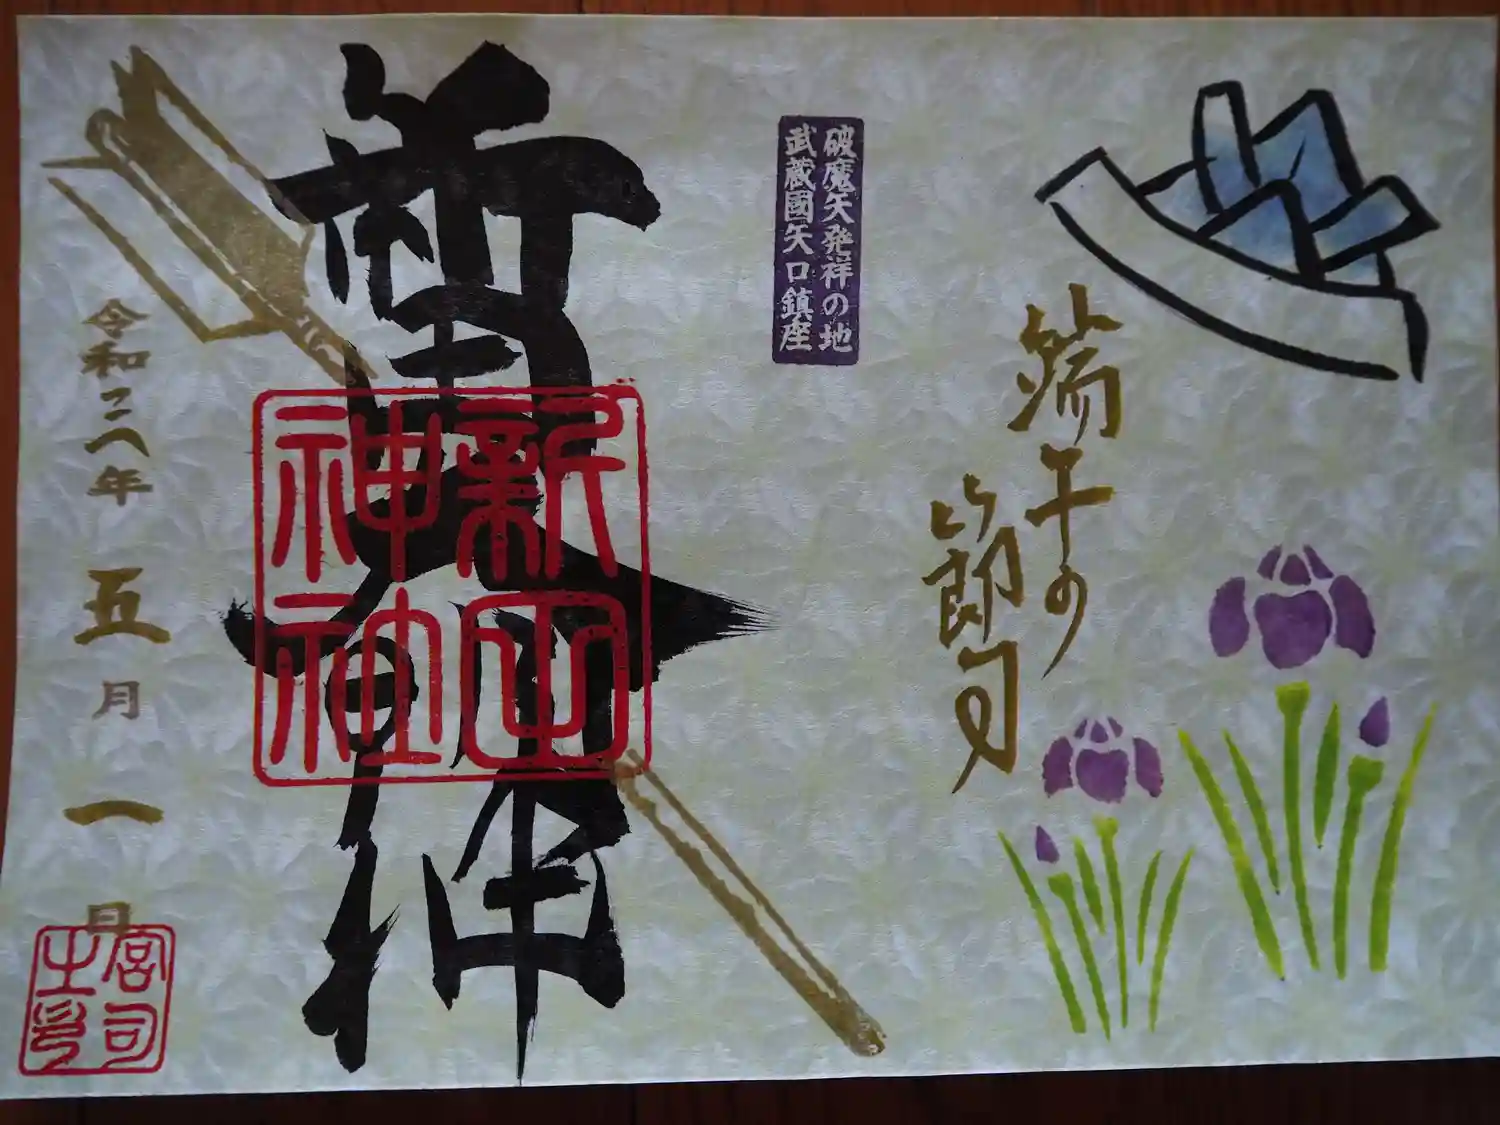 端午の
節句
破魔矢発祥の地
武蔵國矢口鎮座
新田
神社
令和元年五月一日
宮司
之印